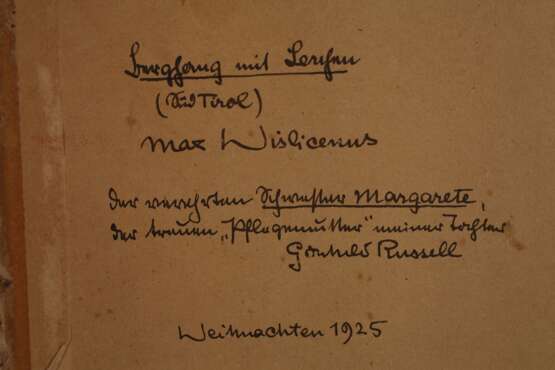 Berghang mit Lerchen
(Süd Tirol)
Max Wislicenus
Der verehrten Schwester Margarete,
der treuen „Pflegemutter" meiner Tochter
Russell
Weihnachten 1925